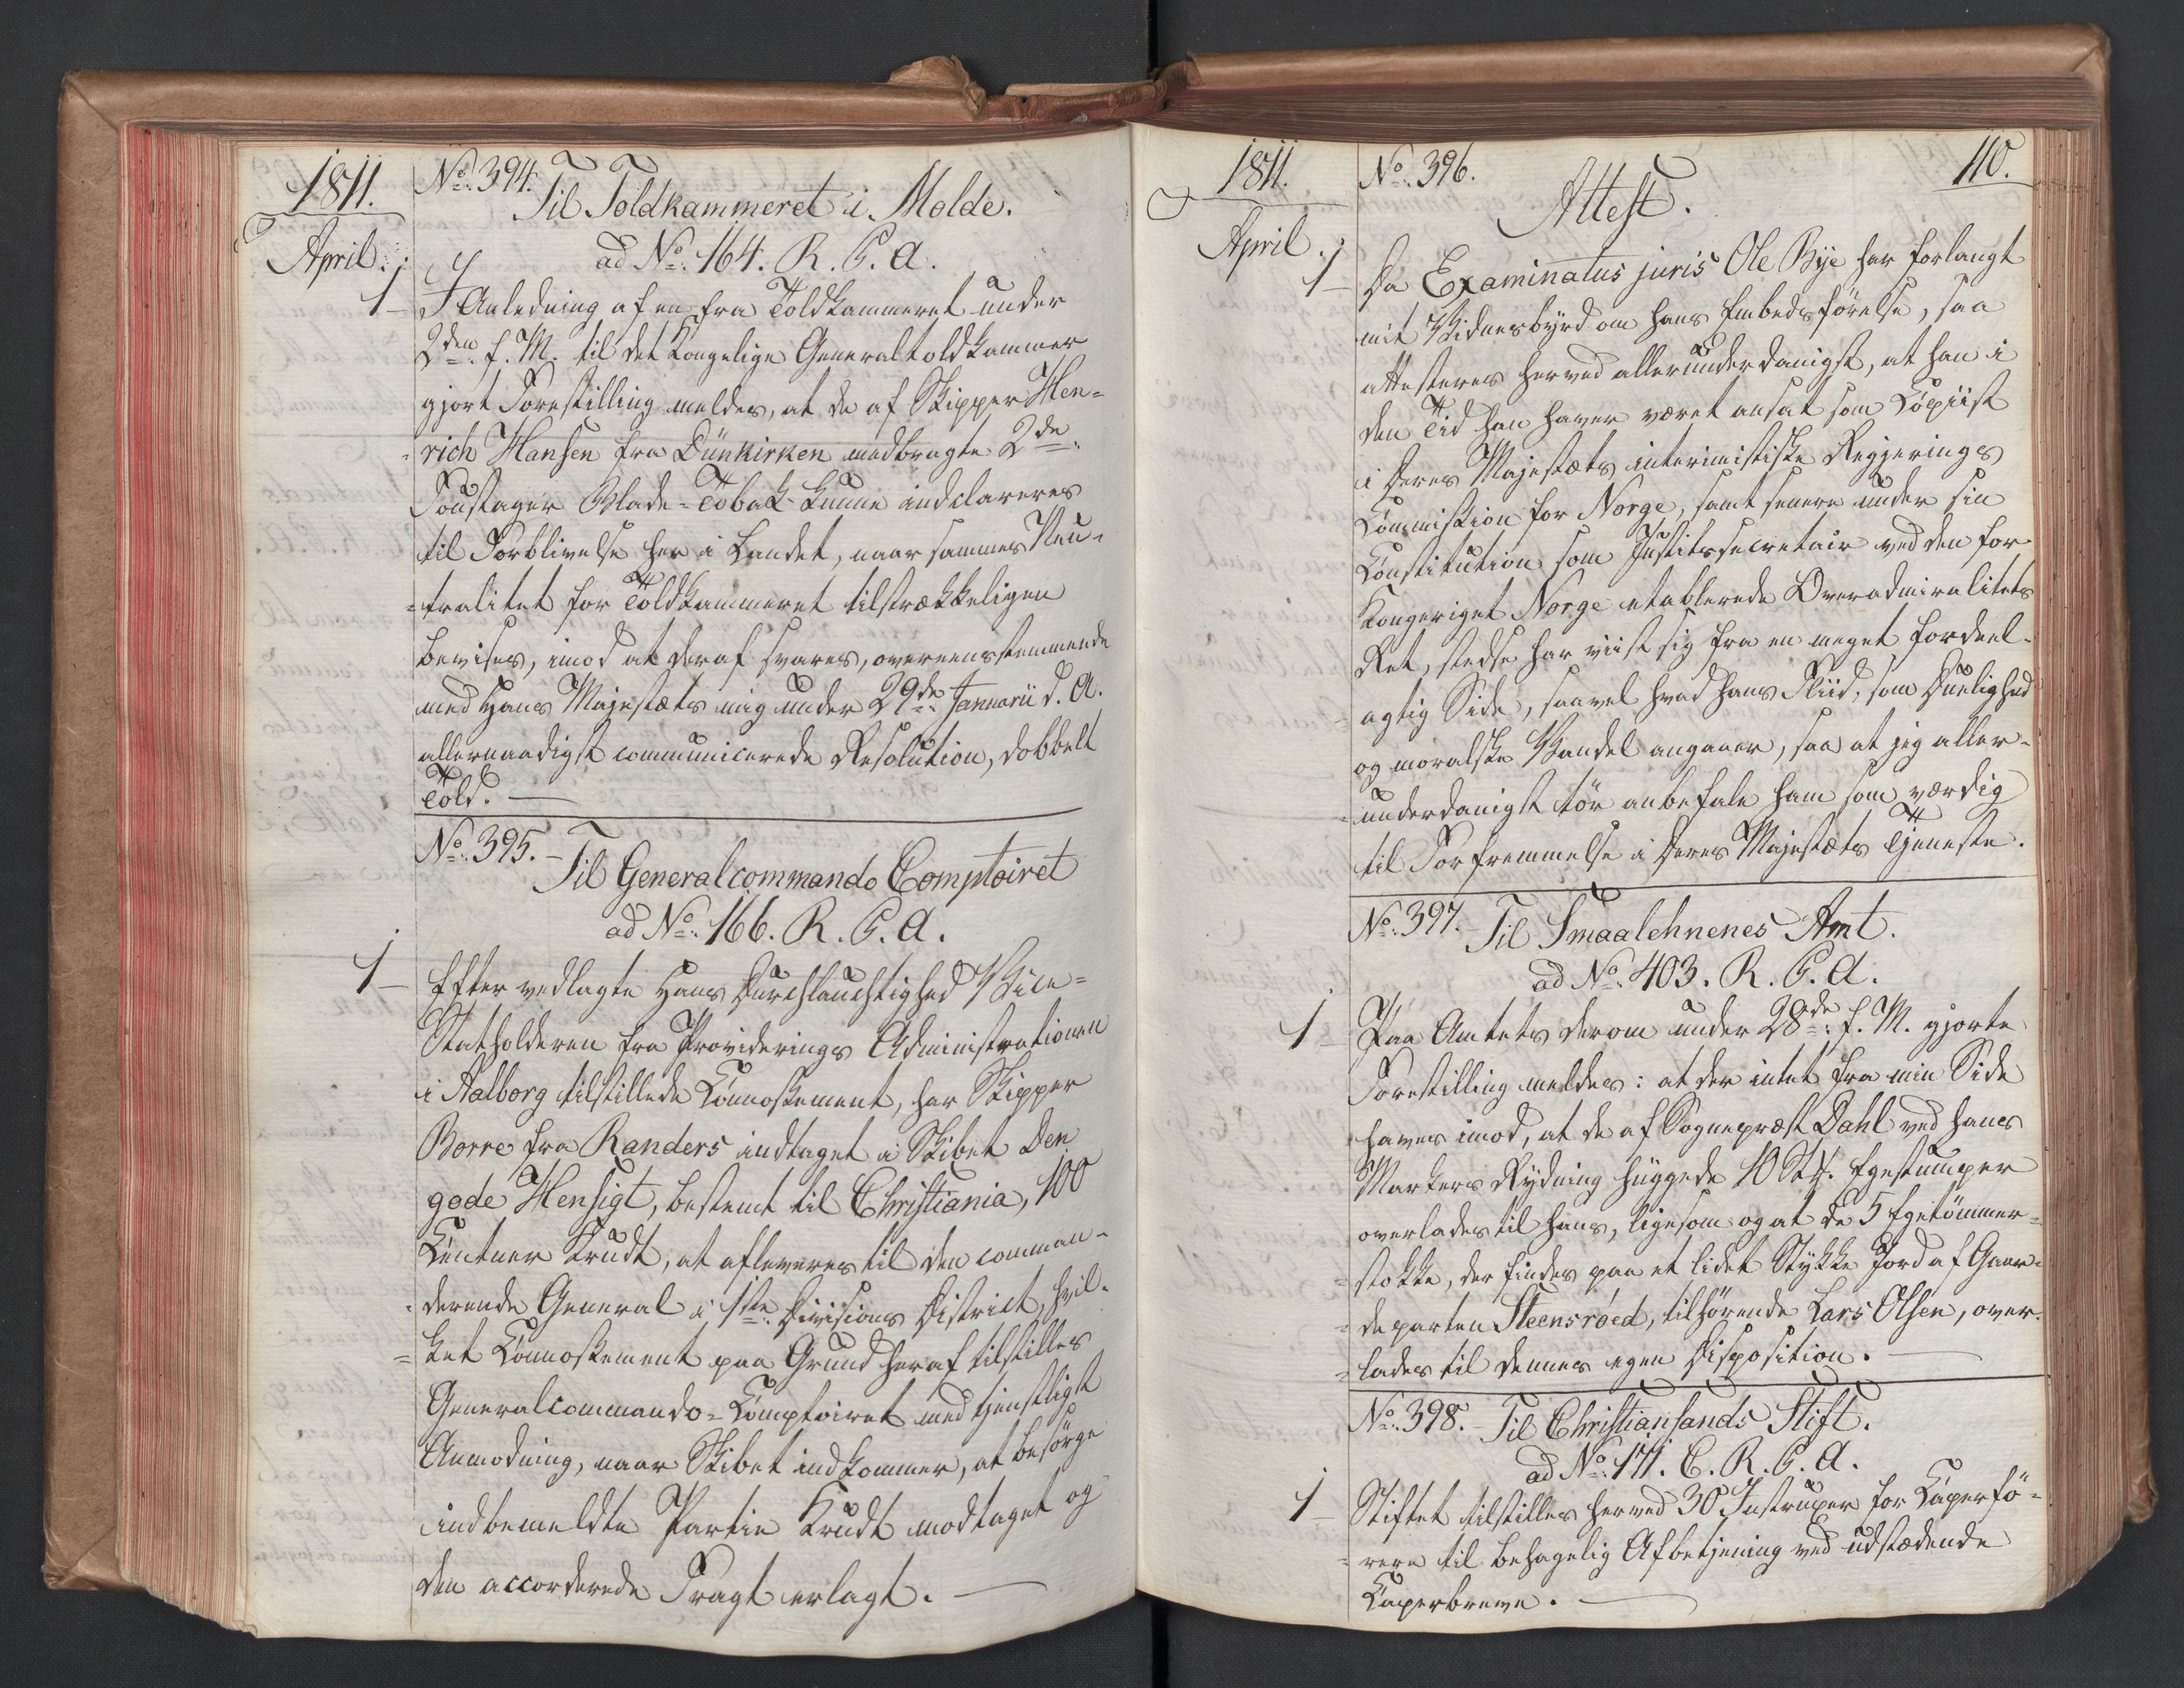 1811.
April.
No. 394.
Til Toldkammeret i Molde.
ad No. 164. R. C. A.
1 — I Anledning af en fra Toldkammeret under
2den f. M. til det Kongelige Generaltoldkammer
gjort Forestilling meldes, at de af Skipper Hen-
-rich Hansen fra Dünkirken medbragte 2de
Foustager Blade-Tobak kunne indclareres
til Forblivelse her i Landet, naar sammes Neu-
-tralitet for Toldkammeret tilstrækkeligen
bevises, imod at deraf svares, overeensstemmende
med Hans Majestæts mig under 29de Januarii d. A.
allernaadigst communicerede Resolution, dobbelt
Told. —
No. 395. — Til Generalcommando Comptoiret
ad No. 166. R. C. A.
1 — Efter vedlagte Hans Durchlauchtighed Vice-
Statholderen fra Providerings Administrationen
i Aalborg tilstillede Connossement, har Skipper
Borre fra Randers indtaget i Skibet Den
gode Hensigt, bestemt til Christiania, 100
Centner Krudt, at afleveres til den comman-
-derende General i 1ste Divisions District, hvil-
-ket Connossement paa Grund heraf tilstilles
Generalcommando-Comptoiret med tjenstligst
Anmodning, naar Skibet indkommer, at besørge
indbemeldte Partie Krudt modtaget og
den accorderede Fragt erlagt. —
1811.
April.
No. 396.
110.
Attest.
1 — Da Examinatus juris Ole Bye har forlangt
mit Vidnesbyrd om hans Embedsførelse, saa
attesteres herved allerunderdanigst, at han i
den Tid han haver været ansat som Copiist
i Deres Majestæts interimistiske Regjerings
Commission for Norge, samt senere under sin
Constitution som Justitssecretair ved den for
Kongeriget Norge etablerede Overadmiralitets
Ret, stedse har viist sig fra en meget fordeel-
agtig Side, saavel hvad hans Fliid, som Duelighed
og moralske Vandel angaaer, saa at jeg aller-
-underdanigst tør anbefale ham som værdig
til Forfremmelse i Deres Majestæts Tjeneste.
No. 397. — Til Smaalehnenes Amt.
ad No. 403. R. C. A.
1 — Paa Amtets derom under 28de f. M. gjorte
Forestilling meldes: at der intet fra min Side
haves imod, at de af Sognepræst Dahl ved hans
Markers Rydning huggede 10 Stk. Egestumper
overlades til hans, ligesom og at de 5 Egetømmer-
-stokke, der findes paa et lidet Stykke Jord af Gaar-
-departen Steensrøed, tilhørende Lars Olsen, over-
-lades til dennes egen Disposition. —
No. 398. — Til Christiansands Stift.
ad No. 171. C. R. C. A.
1 — Stiftet tilstilles herved 30 Instruxer for Caperfø-
-rere til behagelig Afbetjening ved udstædende
Caperbreve. —